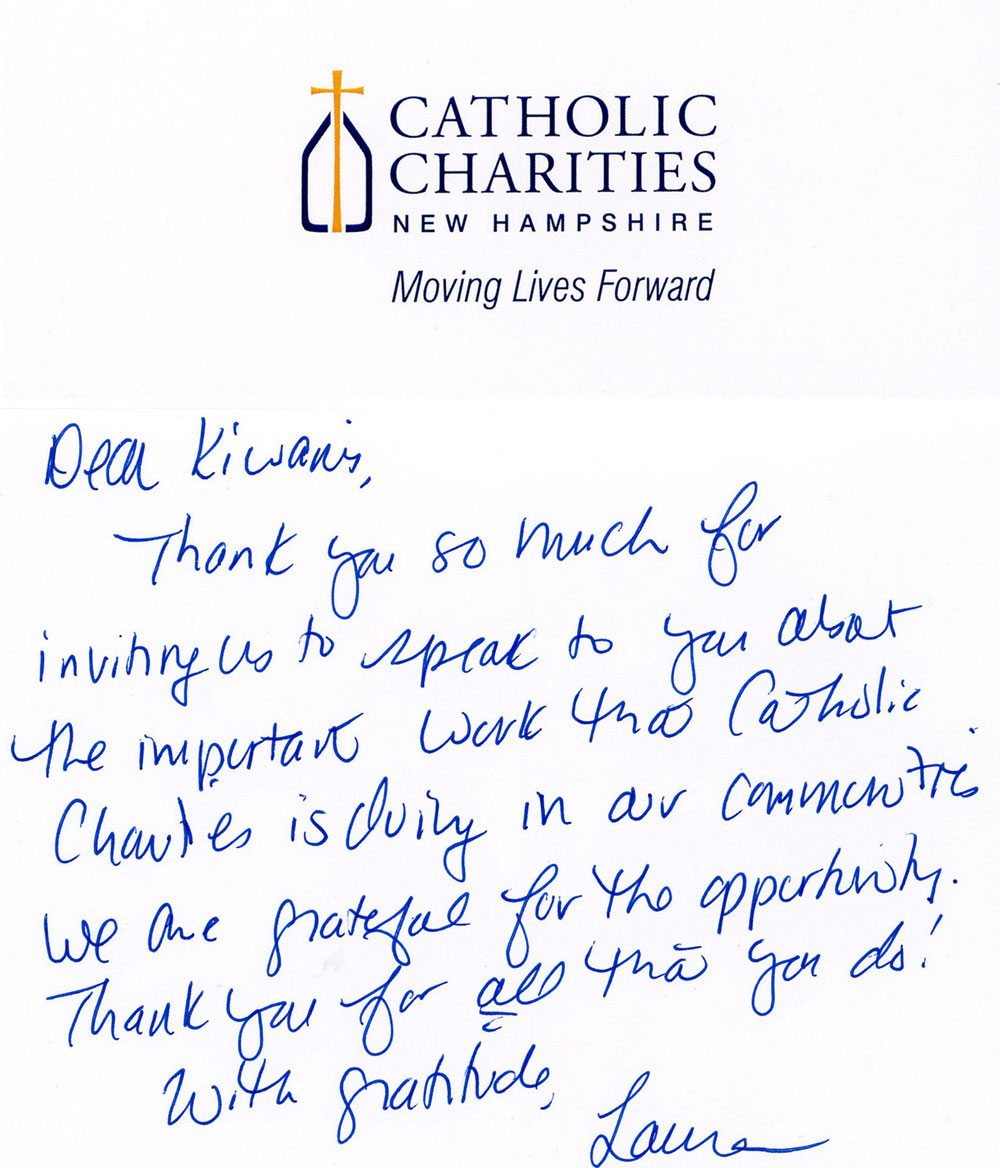 CATHOLIC
CHARITIES
NEW HAMPSHIRE
Moving Lives Forward
Dear Kiwanis,
Thank you so much for
inviting us to speak to you about
the important work that Catholic
Charities is doing in our communities.
We are grateful for the opportunity.
Thank you for all that you do!
With gratitude,
Laura